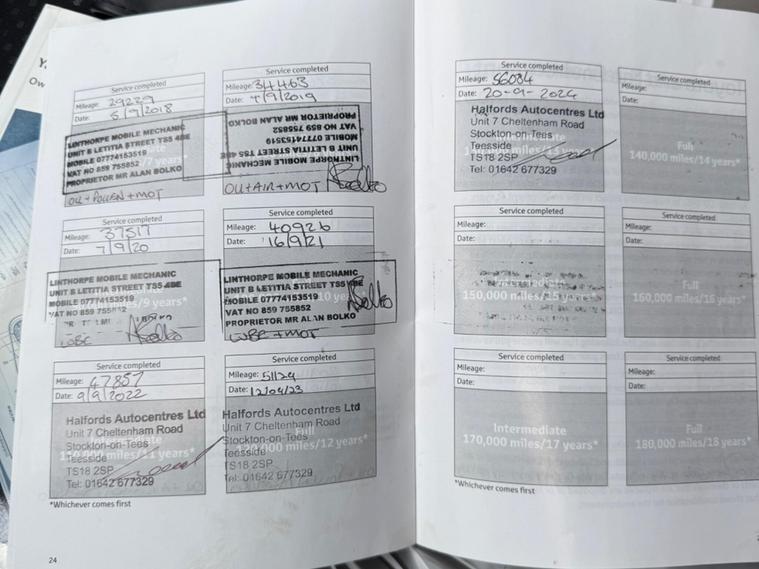 Service completed
Mileage: 29239
Date: 5/9/2018
LINTHORPE MOBILE MECHANIC
UNIT B LETITIA STREET TS5 4BE
MOBILE 07774153519
VAT NO 859 755852
PROPRIETOR MR ALAN BOLKO
/7 years*
OIL + POLLEN + MOT
Service completed
Mileage: 34463
Date: 7/9/2019
LINTHORPE MOBILE MECHANIC
UNIT B LETITIA STREET TS5 4BE
MOBILE 07774153519
VAT NO 859 755852
PROPRIETOR MR ALAN BOLKO
OIL+AIR+MOT
Service completed
Mileage: 37517
Date: 7/9/20
LINTHORPE MOBILE MECHANIC
UNIT B LETITIA STREET TS5 4BE
MOBILE 07774153519
VAT NO 859 755852
/9 years*
LUBE
Service completed
Mileage: 40926
Date: 16/9/21
LINTHORPE MOBILE MECHANIC
UNIT B LETITIA STREET TS5 4BE
MOBILE 07774153519
VAT NO 859 755852
PROPRIETOR MR ALAN BOLKO
years*
LUBE + MOT
Service completed
Mileage: 47857
Date: 9/9/2022
Halfords Autocentres Ltd
Unit 7 Cheltenham Road
Stockton-on-Tees
Teesside
TS18 2SP
Tel: 01642 677329
/11 years*
Service completed
Mileage: 51124
Date: 12/04/23
Halfords Autocentres Ltd
Unit 7 Cheltenham Road
Stockton-on-Tees
Teesside
TS18 2SP
Tel: 01642 677329
Full
/12 years*
*Whichever comes first
24
Service completed
Mileage: 56084
Date: 20-9-2024
Halfords Autocentres Ltd
Unit 7 Cheltenham Road
Stockton-on-Tees
Teesside
TS18 2SP
Tel: 01642 677329
Service completed
Mileage:
Date:
Full
140,000 miles/14 years*
Service completed
Mileage:
Date:
Intermediate
150,000 miles/15 years*
Service completed
Mileage:
Date:
Full
160,000 miles/16 years*
Service completed
Mileage:
Date:
Intermediate
170,000 miles/17 years*
Service completed
Mileage:
Date:
Full
180,000 miles/18 years*
*Whichever comes first